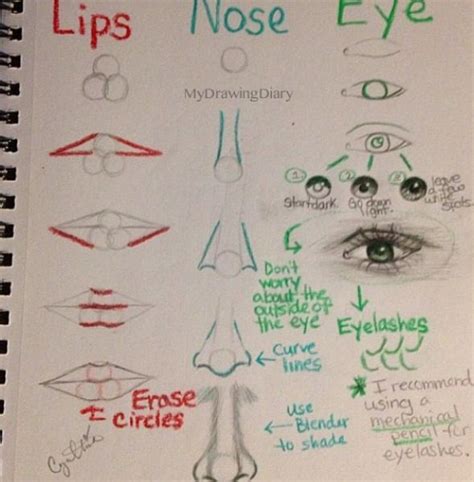 Lips
Nose
Eye
MyDrawingDiary
1
2
3
Start dark.
Go down light.
leave a few white spots
Don't
worry
about the
outside of
the eye
Eyelashes
Curve
lines
Erase
Circles
Use
Blender
to shade
* I recommend
using a
mechanical
pencil for
eyelashes.